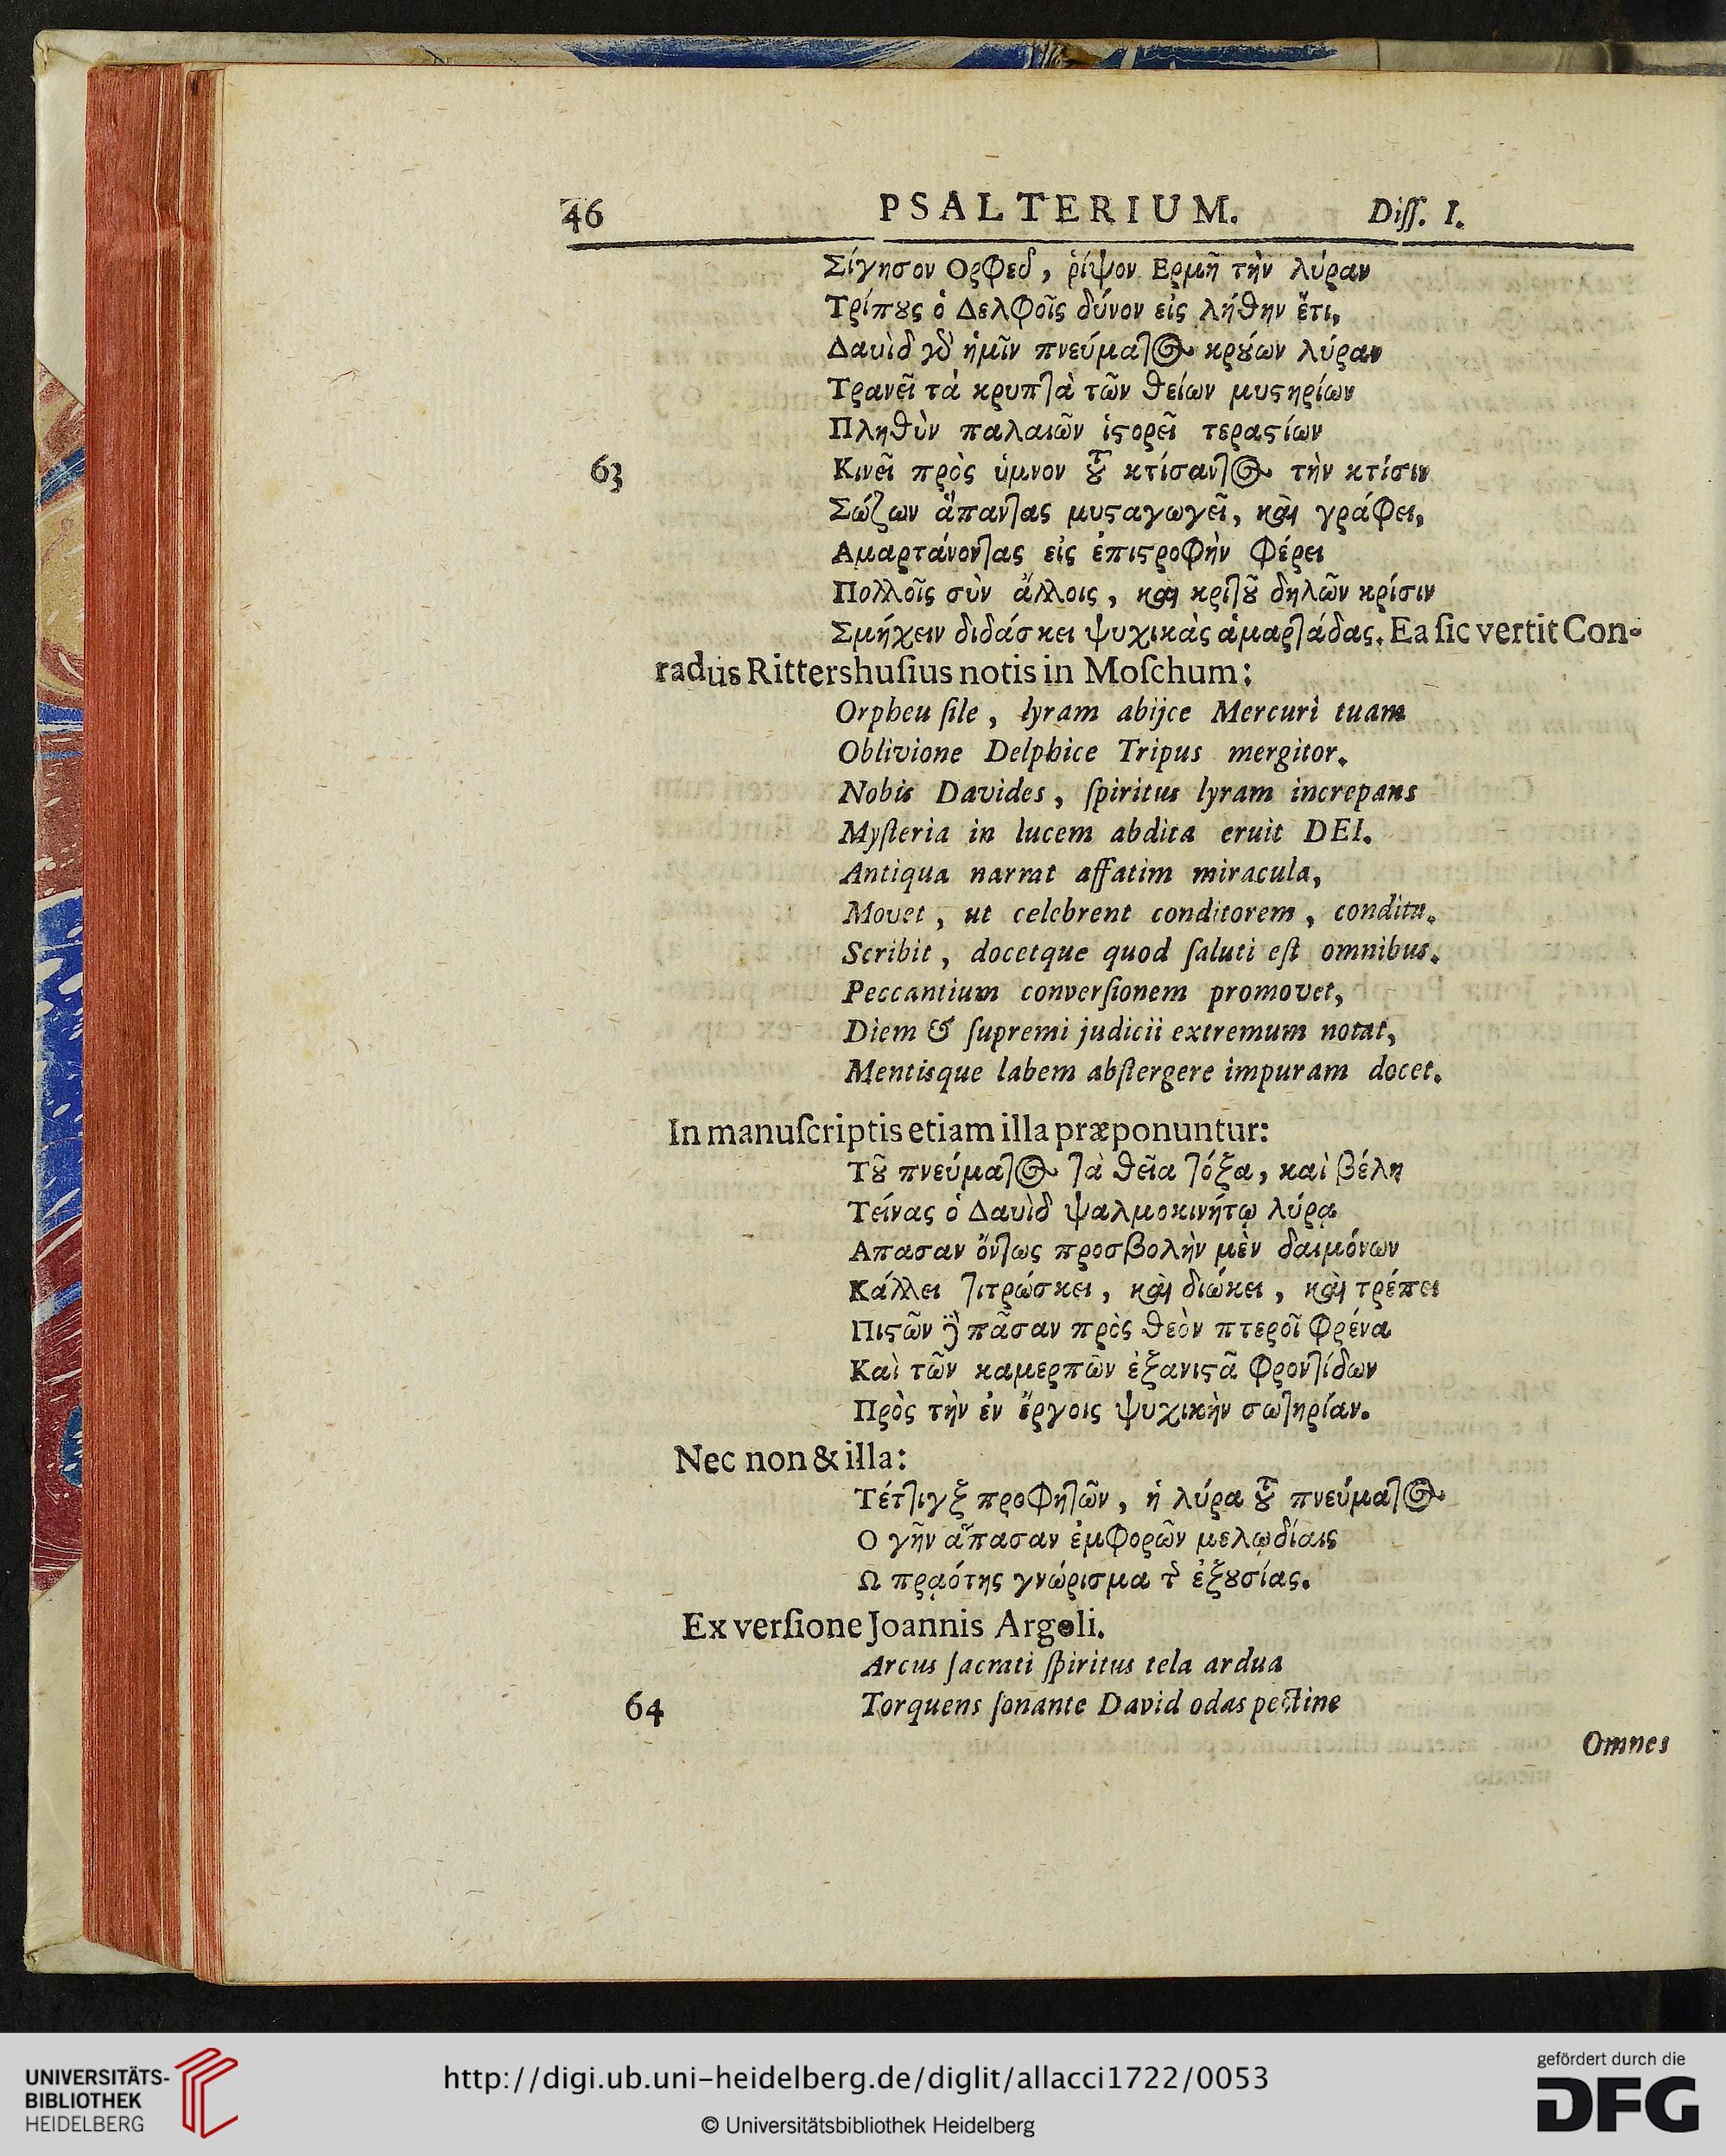 46 PSALTERIUM. Diſſ. I.
Σίγησον Ορφεῦ, ῥίψον Ερμῆ τὴν λύραν
Τρίπȣς ὁ Δελφοῖς δύνον εἰς λήθην ἔτι,
Δαυὶδ γὸ ἡμῖν πνεύματος κρȣ́ων λύραν
Τρανεῖ τὰ κρυπτὰ τῶν θείων μυϛηρίων
Πληθὺν παλαιῶν ἱϛορεῖ τεραϛίων
63 Κινεῖ πρὸς ὑμνον τȣ͂ κτίσαντος τὴν κτίσιν
Σώζων ἅπαντας μυϛαγωγεῖ, καὶ γράφει,
Αμαρτάνοντας εἰς ἐπιϛροφὴν φέρει
Πολλοῖς σὺν ἄλλοις, καὶ κριτȣ͂ δηλῶν κρίσιν
Σμήχειν διδάσκει ψυχικὰς ἁμαρτάδας. Ea ſic vertit Con-
radus Rittershuſius notis in Moſchum:
Orpheu ſile, lyram abijce Mercuri tuam
Oblivione Delphice Tripus mergitor.
Nobis Davides, ſpiritus lyram increpans
Myſteria in lucem abdita eruit DEI.
Antiqua narrat affatim miracula,
Movet, ut celebrent conditorem, condita.
Scribit, docetque quod ſaluti eſt omnibus.
Peccantium converſionem promovet,
Diem & ſupremi judicii extremum notat,
Mentisque labem abſtergere impuram docet.
In manuſcriptis etiam illa præponuntur:
Τȣ͂ πνεύματος τὰ θεῖα τόξα, καὶ βέλη
Τείνας ὁ Δαυὶδ ψαλμοκινήτῳ λύρᾳ
Απασαν ὄντως προσβολὴν μὲν δαιμόνων
Κάλλει τιτρώσκει, καὶ διώκει, καὶ τρέπει
Πιϛῶν δὲ πᾶσαν πρὸς θεὸν πτεροῖ φρένα
Καὶ τῶν καμερπῶν ἐξανιϛᾶ φροντίδων
Πρὸς τὴν ἐν ἔργοις ψυχικὴν σωτηρίαν.
Nec non & illa:
Τέττιγξ προφητῶν, ἡ λύρα τȣ͂ πνεύματος
Ο γῆν ἅπασαν ἐμφορῶν μελῳδίαις
Ω πρᾳότης γνώρισμα τ̃ ἐξȣσίας.
Ex verſione Joannis Argoli.
Arcus ſacrati ſpiritus tela ardua
64 Torquens ſonante David odas pectine
Omnes
UNIVERSITÄTS-
BIBLIOTHEK
HEIDELBERG
http://digi.ub.uni-heidelberg.de/diglit/allacci1722/0053
© Universitätsbibliothek Heidelberg
gefördert durch die
DFG